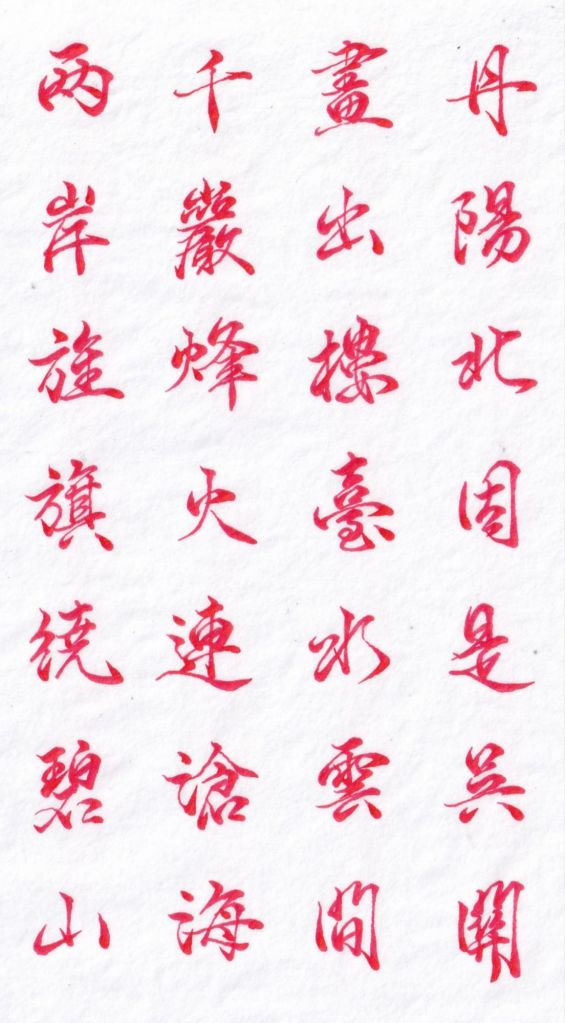 丹陽北固是吳關
畫出樓臺水雲間
千巖烽火連滄海
兩岸旌旗繞碧山